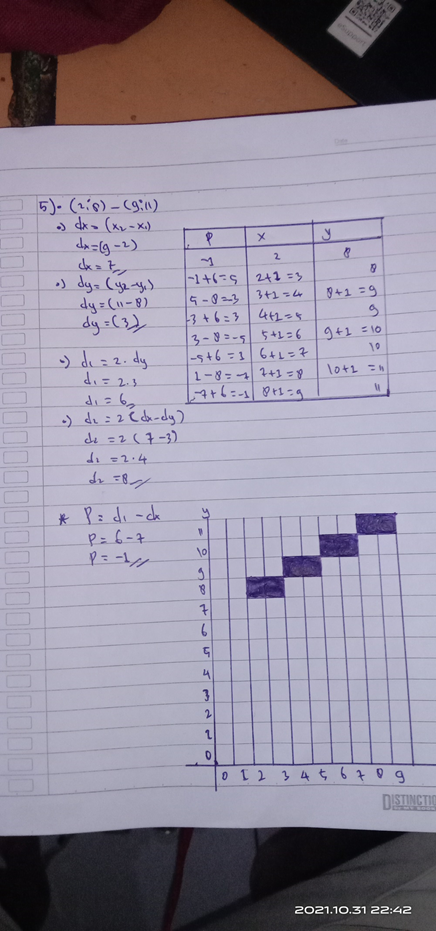 5). (2;8) - (9;11)
•) dx = (x2 - x1)
dx = (9 - 2)
dx = 7
•) dy = (y2 - y1)
dy = (11 - 8)
dy = (3)
•) d1 = 2 . dy
d1 = 2.3
d1 = 6
•) d2 = 2 (dx - dy)
d2 = 2 ( 7 - 3)
d2 = 2.4
d2 = 8
* P = d1 - dx
P = 6 - 7
P = -1
P x y
-1 2 8
-1+6=5 2+1=3 8
5-8=-3 3+1=4 8+1=9
-3+6=3 4+1=5 9
3-8=-5 5+1=6 9+1=10
-5+6=1 6+1=7 10
1-8=-7 7+1=8 10+1=11
-7+6=-1 8+1=9 11
y
11
10
9
8
7
6
5
4
3
2
1
0
0 1 2 3 4 5 6 7 8 9
DISTINCTIO
2021.10.31 22:42